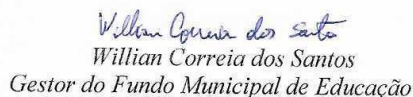 Willian Correia dos Santos
Willian Correia dos Santos
Gestor do Fundo Municipal de Educação